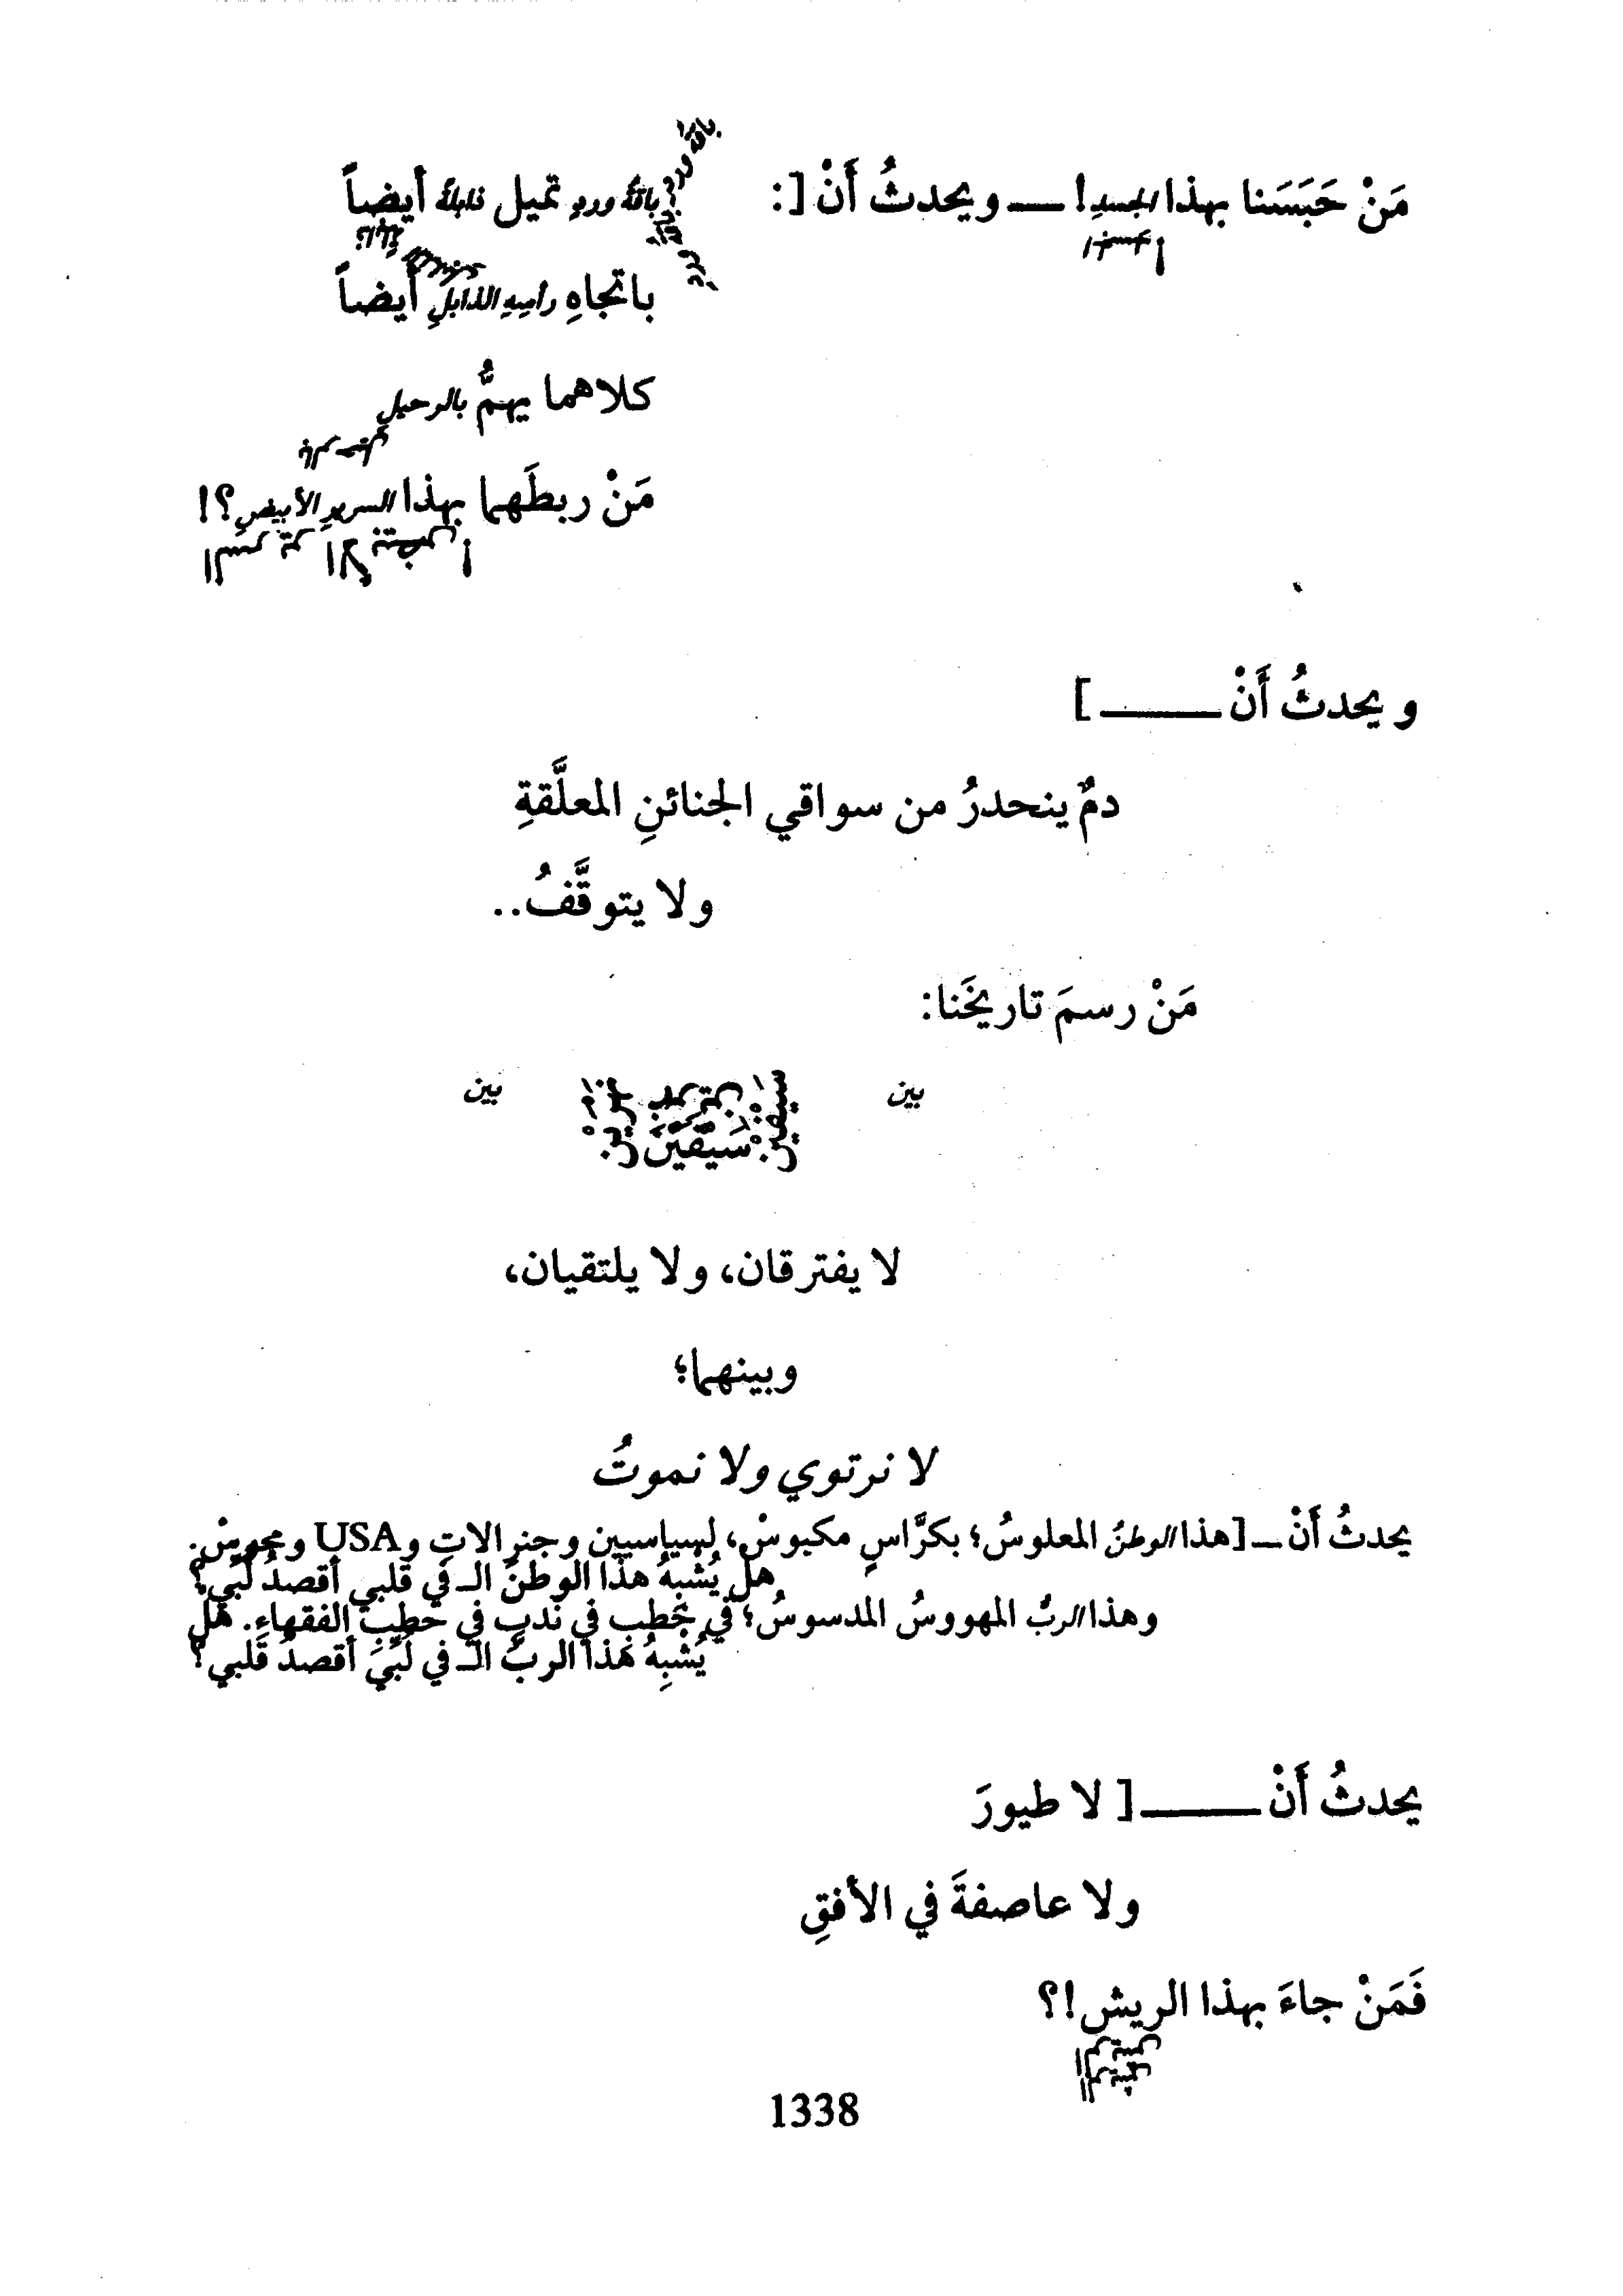 مَنْ حَبَسَنا بهذا الجسدِ! ــــ ويحدثُ أَنْ [: باقةُ وردٍ تميل ذابلةً أيضاً
باتجاهِ رأسِهِ الذابلِ أيضاً
كلاهما يهمُّ بالرحيلِ
مَنْ ربطَهما بهذا السريرِ الأبيضِ؟!
ويحدثُ أَنْ ــــــــ [
دمٌ ينحدرُ من سواقي الجنائنِ المعلَّقةِ
ولا يتوقَّفُ..
مَنْ رسمَ تاريخَنا:
بين سيفين بين
لا يفترقان، ولا يلتقيان،
وبينهما؛
لا نرتوي ولا نموتُ
يحدثُ أَنْ ــ [هذا الوطنُ المعلوسُ؛ بكرَّاسٍ مكبوسْ، لسياسيين وجنرالاتٍ وUSA ومجوسْ.
هل يُشْبِهُ هذا الوطنَ الـ في قلبي أقصدُ لُبِّي؟
وهذا الربُّ المهووسُ المدسوسُ؛ في خُطبٍ في نُدبٍ في حطبِ الفقهاءِ. هل
يُشْبِهُ هذا الربَّ الـ في لُبِّيَ أقصدُ قلبي؟
يحدثُ أَنْ ــــــــ [ لا طيورَ
ولا عاصفةَ في الأفقِ
فَمَنْ جاءَ بهذا الريش!؟
1338